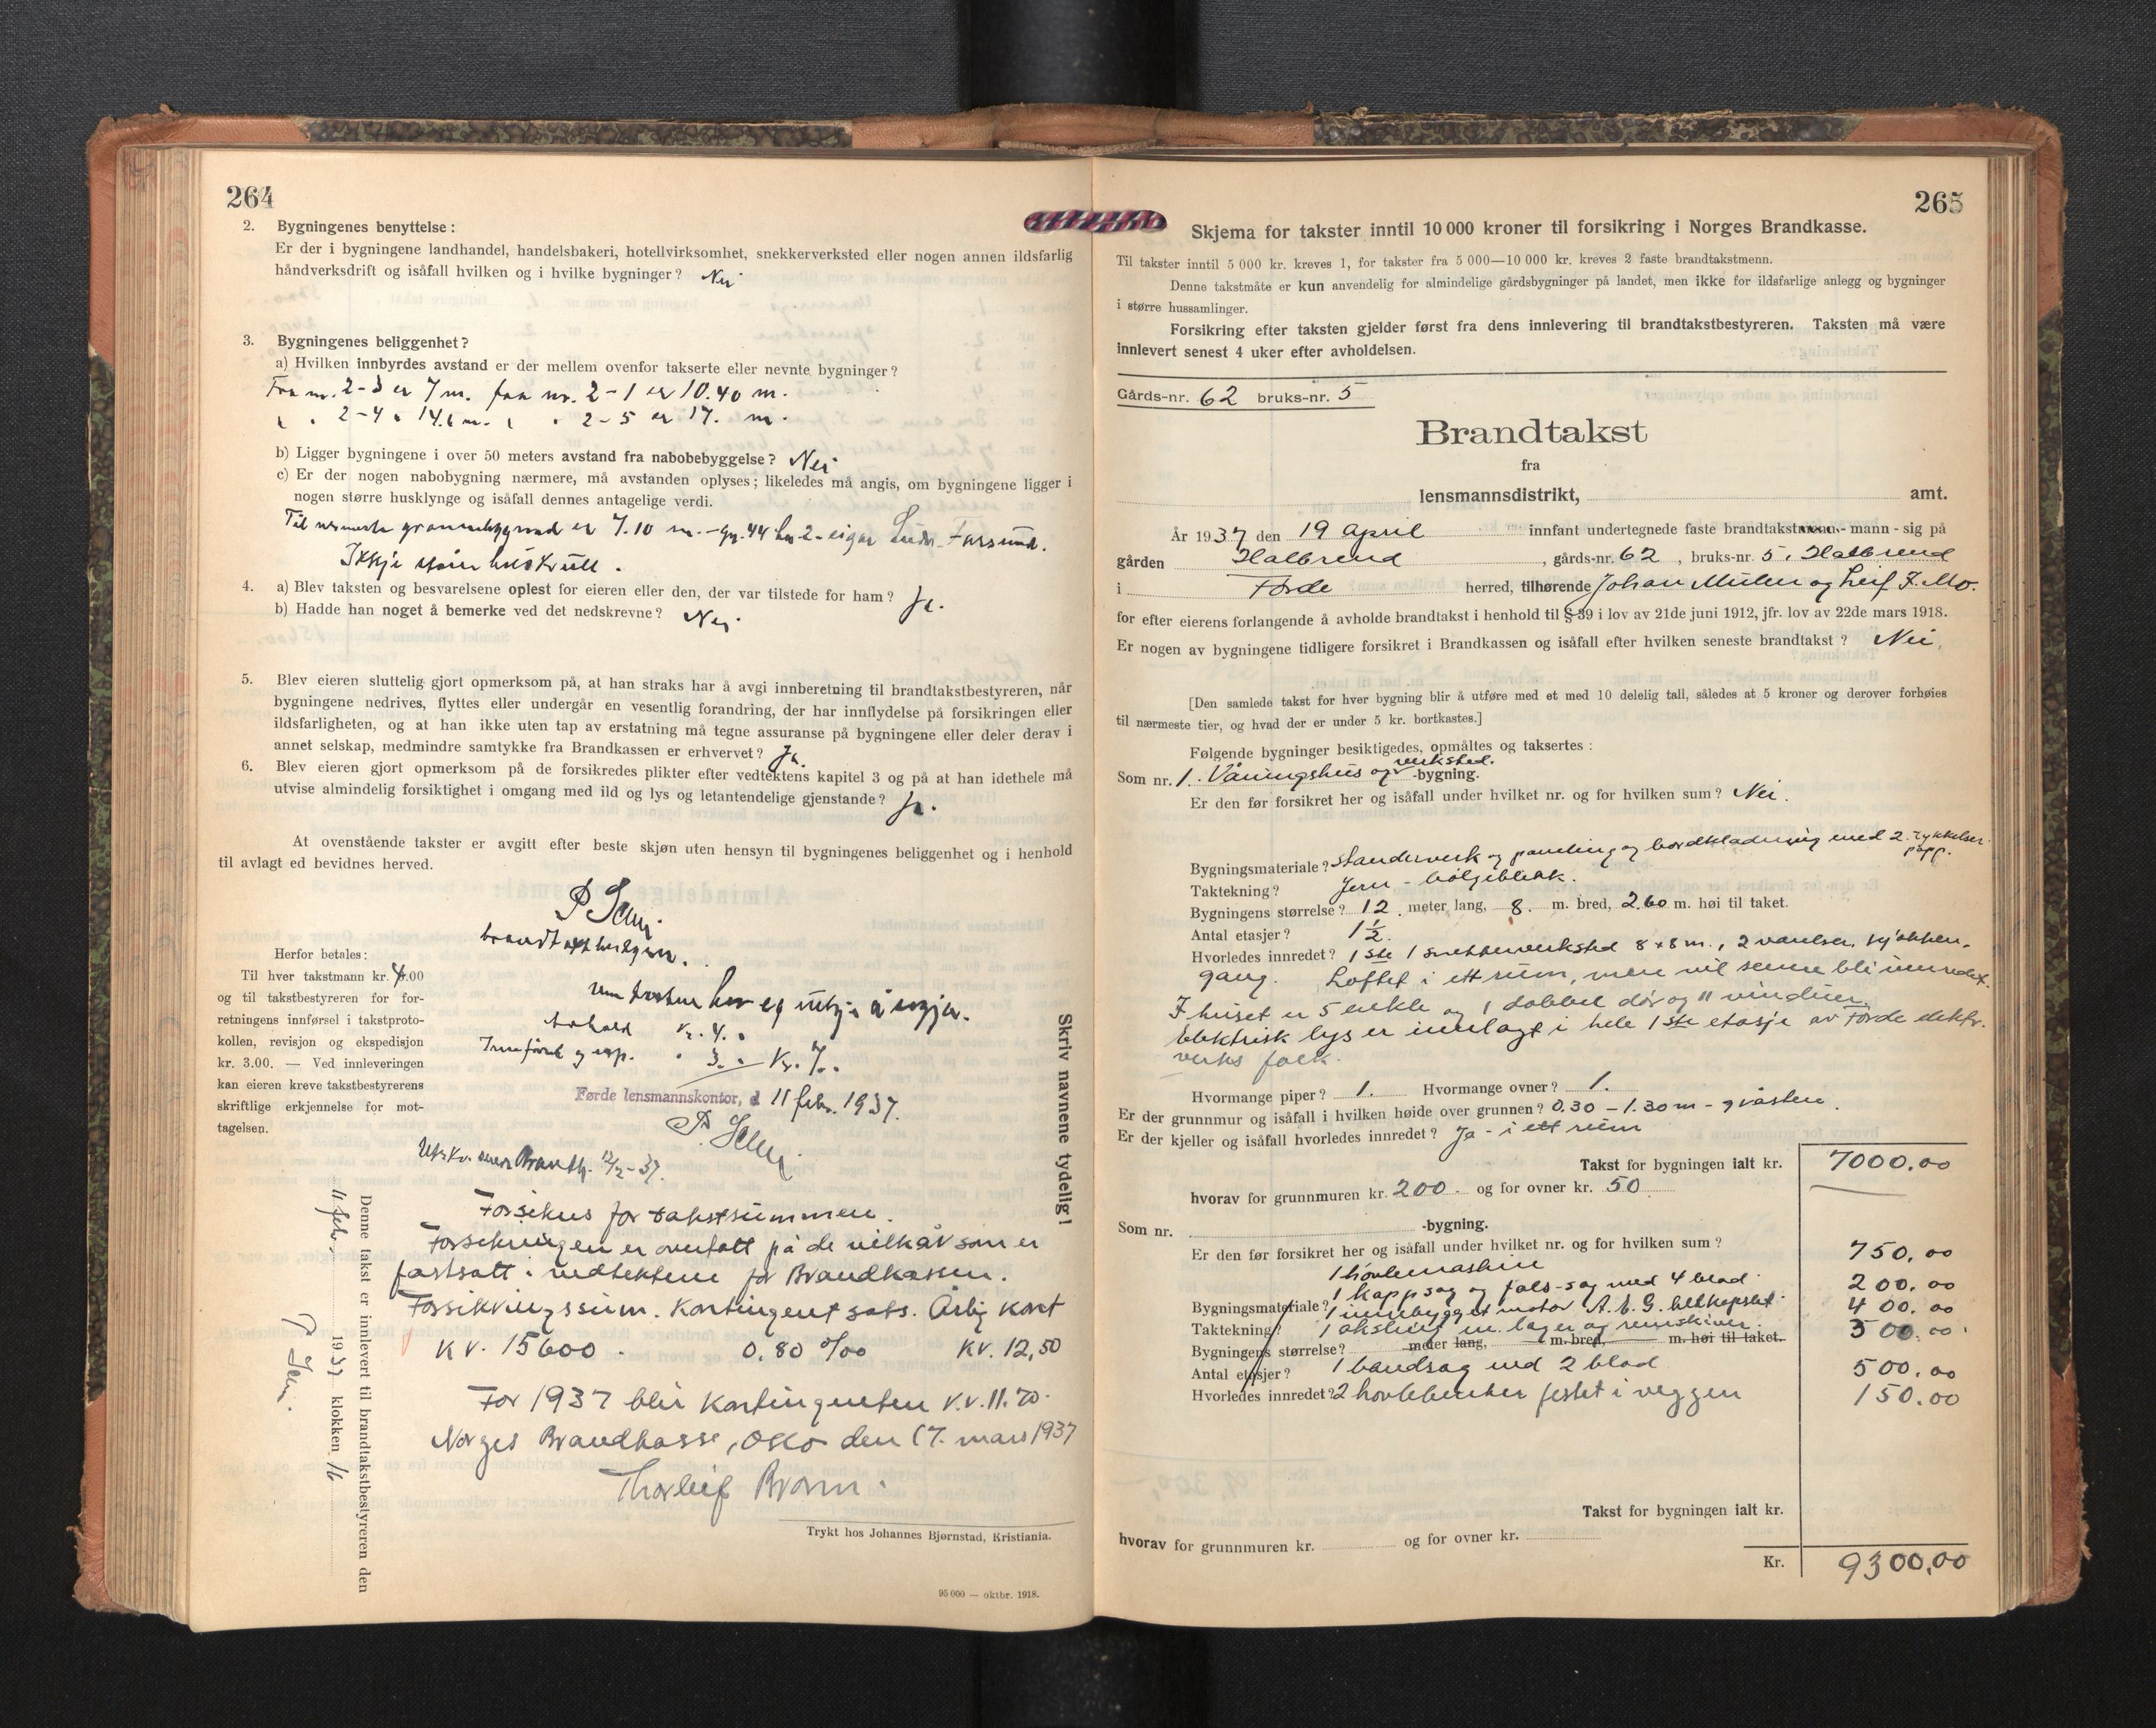 264
2. Bygningenes benyttelse :
Er der i bygningene landhandel, handelsbakeri, hotellvirksomhet, snekkerverksted eller nogen annen ildsfarlig
håndverksdrift og isåfall hvilken og i hvilke bygninger? Nei
3. Bygningenes beliggenhet?
a) Hvilken innbyrdes avstand er der mellem ovenfor takserte eller nevnte bygninger?
Fra nr. 2-3 er 7 m. fra nr. 2-1 er 10.40 m.
2-4 " 14.6 m. " " 2-5 er 17. m.
b) Ligger bygningene i over 50 meters avstand fra nabobebyggelse? Nei
c) Er der nogen nabobygning nærmere, må avstanden oplyses; likeledes må angis, om bygningene ligger i
nogen større husklynge og isåfall dennes antagelige verdi.
Til nærmeste grannebygnad er 7.10 m. - gn. 44 bn 2 - eigar Farsund.
Ikkje større
4. a) Blev taksten og besvarelsene oplest for eieren eller den, der var tilstede for ham? Ja.
b) Hadde han noget å bemerke ved det nedskrevne? Nei
5. Blev eieren sluttelig gjort opmerksom på, at han straks har å avgi innberetning til brandtakstbestyreren, når
bygningene nedrives, flyttes eller undergår en vesentlig forandring, der har innflydelse på forsikringen eller
ildsfarligheten, og at han ikke uten tap av erstatning må tegne assuranse på bygningene eller deler derav i
annet selskap, medmindre samtykke fra Brandkassen er erhvervet? Ja.
6. Blev eieren gjort opmerksom på de forsikredes plikter efter vedtektens kapitel 3 og på at han idethele må
utvise almindelig forsiktighet i omgang med ild og lys og letantendelige gjenstande? Ja.
At ovenstående takster er avgitt efter beste skjøn uten hensyn til bygningenes beliggenhet og i henhold
til avlagt ed bevidnes herved.
Herfor betales:
Til hver takstmann kr. 4.00
og til takstbestyreren for for-
retningens innførsel i takstproto-
kollen, revisjon og ekspedisjon
kr. 3.00. — Ved innleveringen
kan eieren kreve takstbestyrerens
skriftlige erkjennelse for mot-
tagelsen.
taksten har eg
kr. 4. "
" 3. " Kr. 7.
Førde lensmannskontor, d 11 febr. 1937.
Skriv navnene tydelig!
Denne takst er innlevert til brandtakstbestyreren den
11 febr. 1937 klokken 16
Forsikres for takstsummen.
Forsikringen er overtatt på de vilkår som er
fastsatt i vedtektene for Brandkassen.
Forsikringssum. Kontingentsats. Årlig kont
Kr. 15600. 0.80 ‰ Kr. 12,50
For 1937 blir kontingenten kr. 11.70.
Norges Brandkasse, Oslo den 17. mars 1937
Thorleif
Trykt hos Johannes Bjørnstad, Kristiania.
95 000 — oktbr. 1918.
265
Skjema for takster inntil 10 000 kroner til forsikring i Norges Brandkasse.
Til takster inntil 5 000 kr. kreves 1, for takster fra 5 000—10 000 kr. kreves 2 faste brandtakstmenn.
Denne takstmåte er kun anvendelig for almindelige gårdsbygninger på landet, men ikke for ildsfarlige anlegg og bygninger
i større hussamlinger.
Forsikring efter taksten gjelder først fra dens innlevering til brandtakstbestyreren. Taksten må være
innlevert senest 4 uker efter avholdelsen.
Gårds-nr. 62 bruks-nr. 5
Brandtakst
fra
lensmannsdistrikt, amt.
År 1937 den 19 april innfant undertegnede faste brandtakstmenn - mann - sig på
gården Halbrend, gårds-nr. 62, bruks-nr. 5. Halbrend
i Førde herred, tilhørende Johan Müller og Leif J. Mo.
for efter eierens forlangende å avholde brandtakst i henhold til § 39 i lov av 21de juni 1912, jfr. lov av 22de mars 1918.
Er nogen av bygningene tidligere forsikret i Brandkassen og isåfall efter hvilken seneste brandtakst? Nei.
[Den samlede takst for hver bygning blir å utføre med et med 10 delelig tall, således at 5 kroner og derover forhøies
til nærmeste tier, og hvad der er under 5 kr. bortkastes.]
Følgende bygninger besiktigedes, opmåltes og taksertes :
Som nr. 1. Våningshus og verksted. -bygning.
Er den før forsikret her og isåfall under hvilket nr. og for hvilken sum? Nei.
Bygningsmateriale? standerverk og paneling og bordkledning med 2. tykkelser papp.
Taktekning? Jern - bølgeblikk.
Bygningens størrelse? 12. meter lang, 8. m. bred, 2.60 m. høi til taket.
Antal etasjer? 1½.
Hvorledes innredet? 1ste 1 snekkerverksted 8x8 m., 2 værelser, kjøkken-
gang. Loftet i ett rum, men vil senne bli innredet.
I huset er 5 enkle og 1 dobbel dør og 11 vinduer.
Elektrisk lys er innlagt i hele 1ste etasje av Førde elektr.
verks folk.
Hvormange piper? 1. Hvormange ovner? 1.
Er der grunnmur og isåfall i hvilken høide over grunnen? 0.30 - 1.30 m - gråsten.
Er der kjeller og isåfall hvorledes innredet? Ja - i ett rum
Takst for bygningen ialt kr. 7000.00
hvorav for grunnmuren kr. 200. og for ovner kr. 50
Som nr. -bygning.
Er den før forsikret her og isåfall under hvilket nr. og for hvilken sum?
1 høvlemaskin 750.00
Bygningsmateriale? 1 kappsag og fals-sag med 4 blad 200.00
Taktekning? 1 innebygget motor A.E.G. helkapslet. 400.00
Bygningens størrelse? meter lang, m. bred, m. høi til taket.
1 aksling m. lager og remskiver. 300.00
Antal etasjer? 1 bandsag med 2 blad 500.00
Hvorledes innredet? 2 høvlebenker festet i veggen 150.00
Takst for bygningen ialt kr.
hvorav for grunnmuren kr. og for ovner kr.
Kr. 9300.00